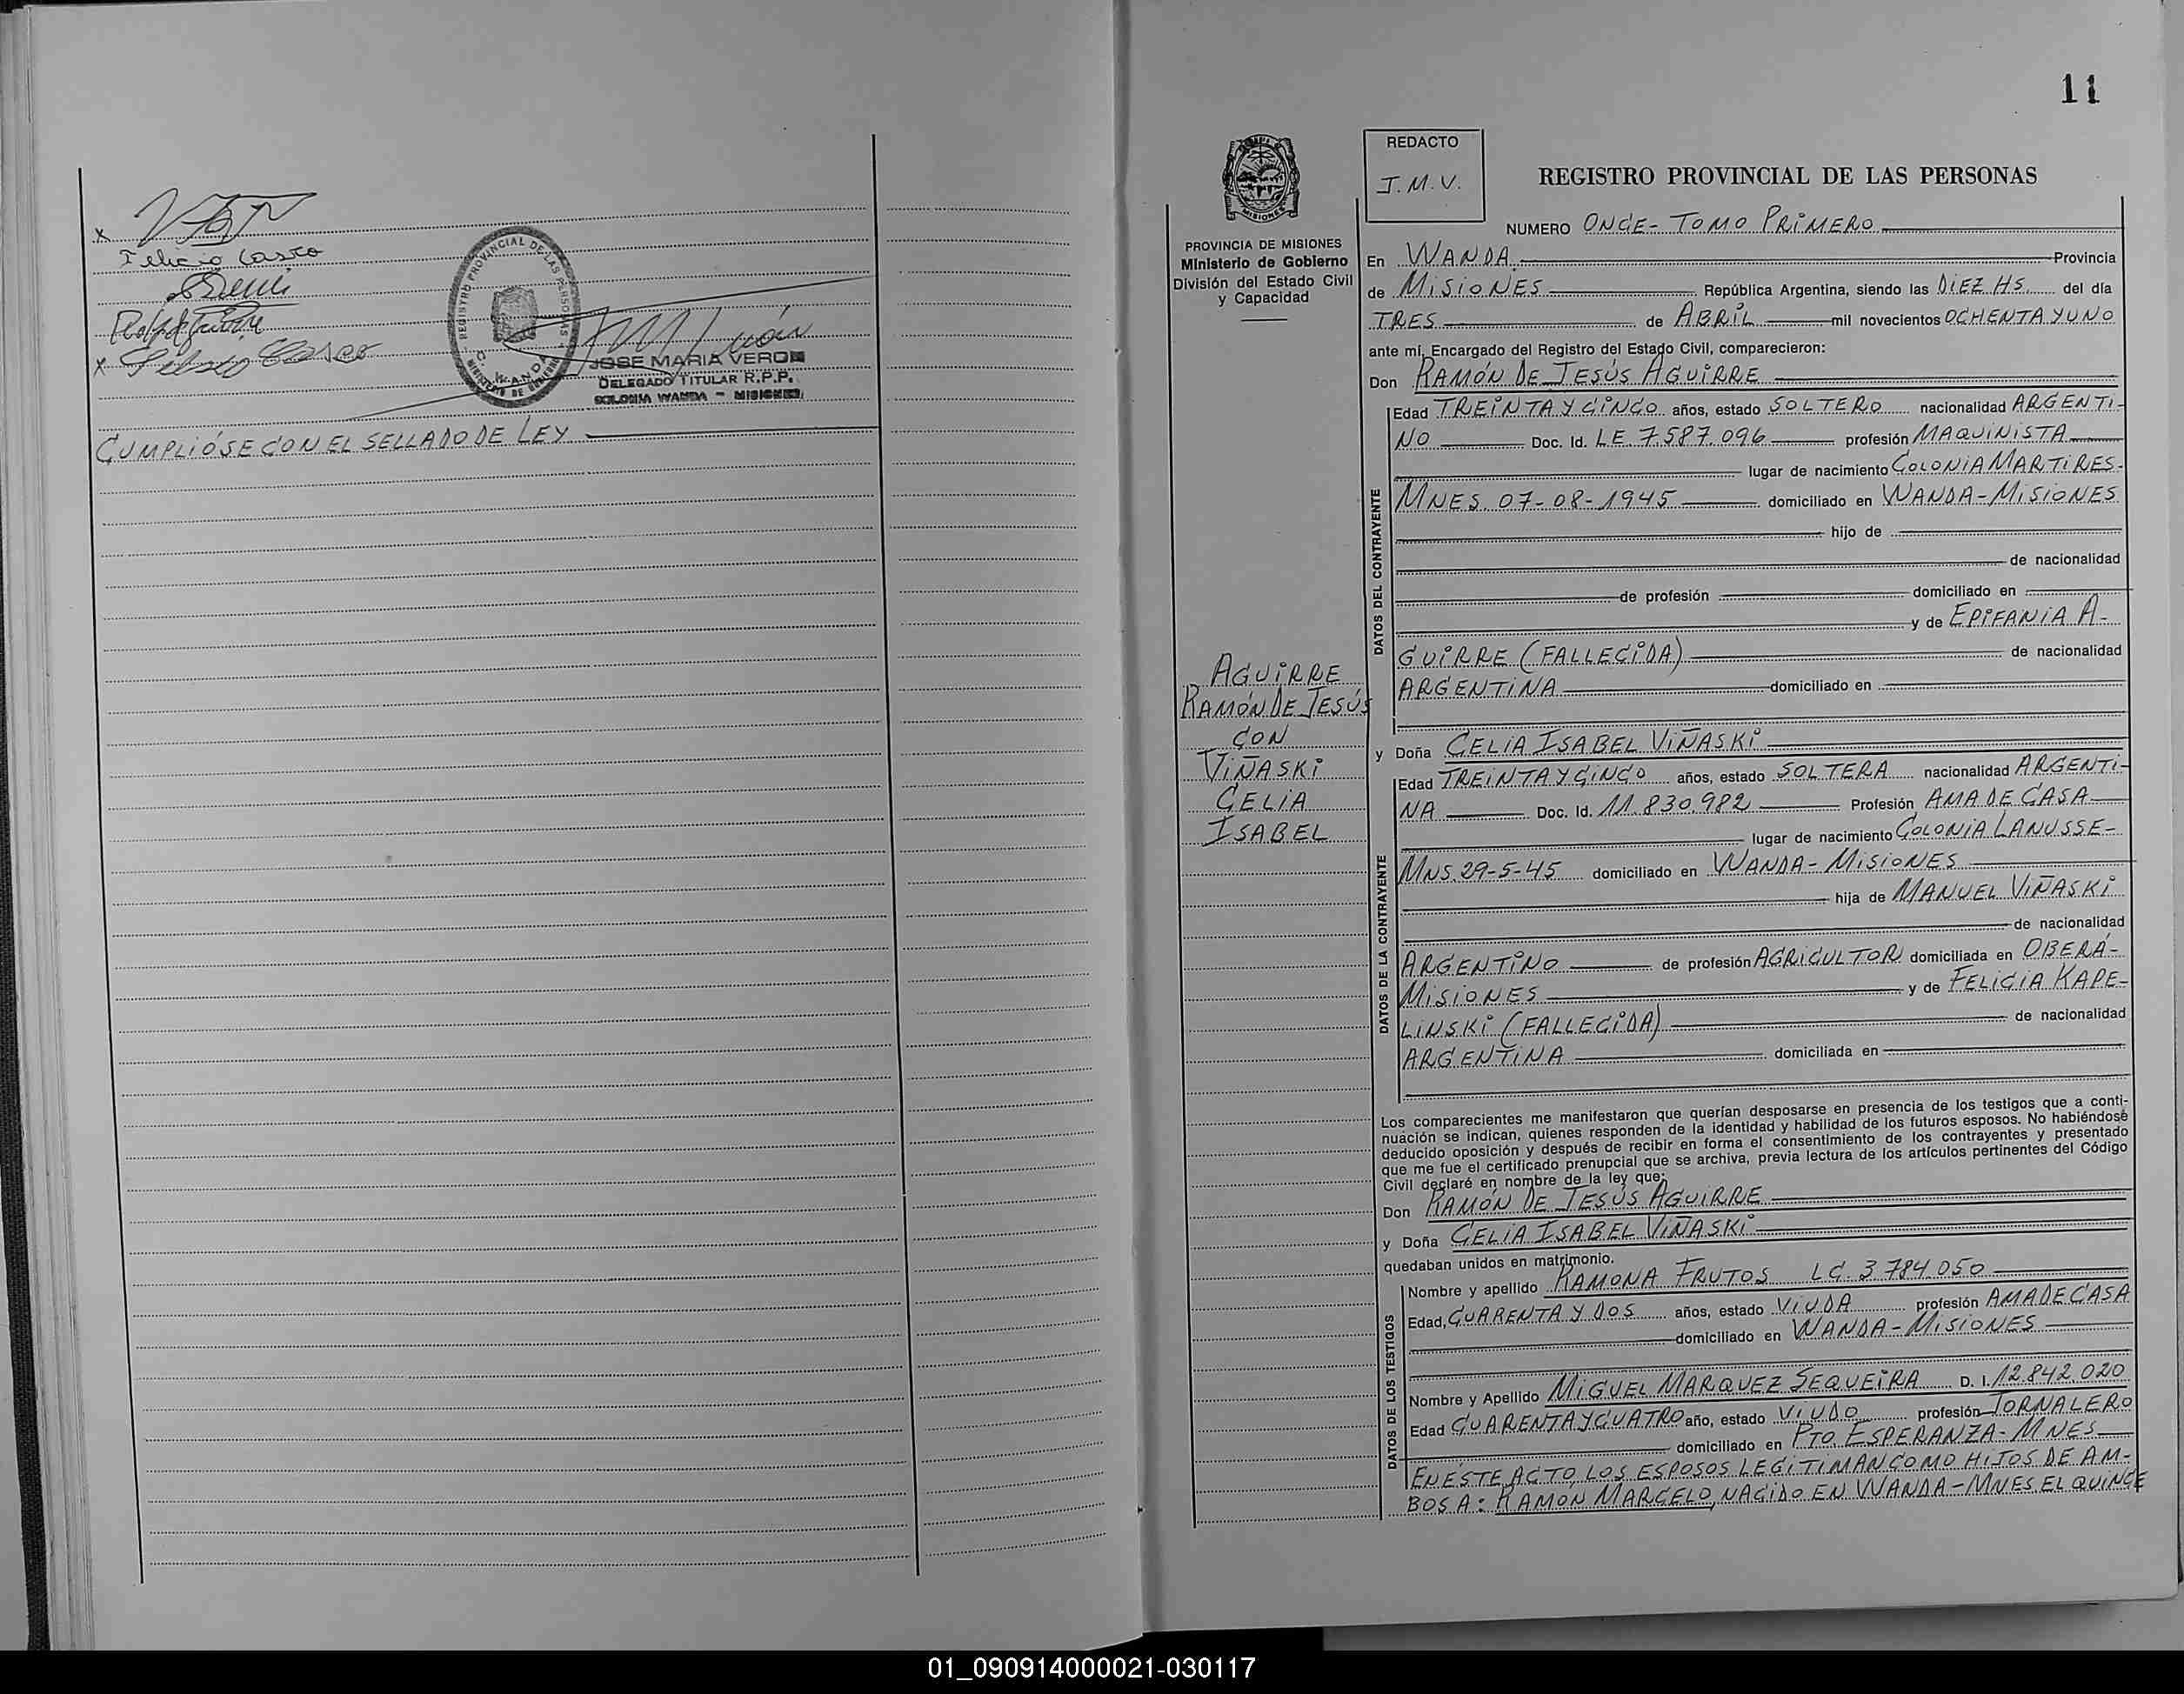 Felicio Casco
REGISTRO PROVINCIAL DE LAS PERSONAS
WANDA
JOSE MARIA VERON
DELEGADO TITULAR R.P.P.
COLONIA WANDA - MISIONES
CUMPLIÓSE CON EL SELLADO DE LEY
11
REDACTO
J.M.V.
REGISTRO PROVINCIAL DE LAS PERSONAS
MISIONES
PROVINCIA DE MISIONES
Ministerio de Gobierno
División del Estado Civil
y Capacidad
AGUIRRE
RAMÓN DE JESÚS
CON
VIÑASKI
CELIA
ISABEL
NUMERO ONCE- TOMO PRIMERO
En WANDA Provincia
de MISIONES República Argentina, siendo las DIEZ HS. del día
TRES de ABRIL mil novecientos OCHENTA Y UNO
ante mí, Encargado del Registro del Estado Civil, comparecieron:
Don RAMÓN DE JESÚS AGUIRRE
DATOS DEL CONTRAYENTE
Edad TREINTA Y CINCO años, estado SOLTERO nacionalidad ARGENTI-
NO Doc. Id. LE. 7.587.096 profesión MAQUINISTA
lugar de nacimiento COLONIA MARTIRES-
MNES. 07-08-1945 domiciliado en WANDA-MISIONES
hijo de
de nacionalidad
de profesión domiciliado en
y de EPIFANIA A-
GUIRRE (FALLECIDA) de nacionalidad
ARGENTINA domiciliado en
y Doña CELIA ISABEL VIÑASKI
DATOS DE LA CONTRAYENTE
Edad TREINTA Y CINCO años, estado SOLTERA nacionalidad ARGENTI-
NA Doc. Id. 11.830.982 Profesión AMA DE CASA
lugar de nacimiento COLONIA LANUSSE-
MNS. 29-5-45 domiciliado en WANDA-MISIONES
hija de MANUEL VIÑASKI
de nacionalidad
ARGENTINO de profesión AGRICULTOR domiciliada en OBERÁ-
MISIONES y de FELICIA KAPE-
LINSKI (FALLECIDA) de nacionalidad
ARGENTINA domiciliada en
Los comparecientes me manifestaron que querían desposarse en presencia de los testigos que a conti-
nuación se indican, quienes responden de la identidad y habilidad de los futuros esposos. No habiéndose
deducido oposición y después de recibir en forma el consentimiento de los contrayentes y presentado
que me fue el certificado prenupcial que se archiva, previa lectura de los artículos pertinentes del Código
Civil declaré en nombre de la ley que:
Don RAMÓN DE JESÚS AGUIRRE
y Doña CELIA ISABEL VIÑASKI
quedaban unidos en matrimonio.
DATOS DE LOS TESTIGOS
Nombre y apellido RAMONA FRUTOS LC. 3.784.050
Edad, CUARENTA Y DOS años, estado VIUDA profesión AMA DE CASA
domiciliado en WANDA-MISIONES
Nombre y Apellido MIGUEL MARQUEZ SEQUEIRA D. I. 12.842.020
Edad CUARENTA Y CUATRO año, estado VIUDO profesión JORNALERO
domiciliado en PTO ESPERANZA-MNES
EN ESTE ACTO, LOS ESPOSOS LEGITIMAN COMO HIJOS DE AM-
BOS A: RAMÓN MARCELO, NACIDO EN WANDA-MNES EL QUINCE
01_090914000021-030117